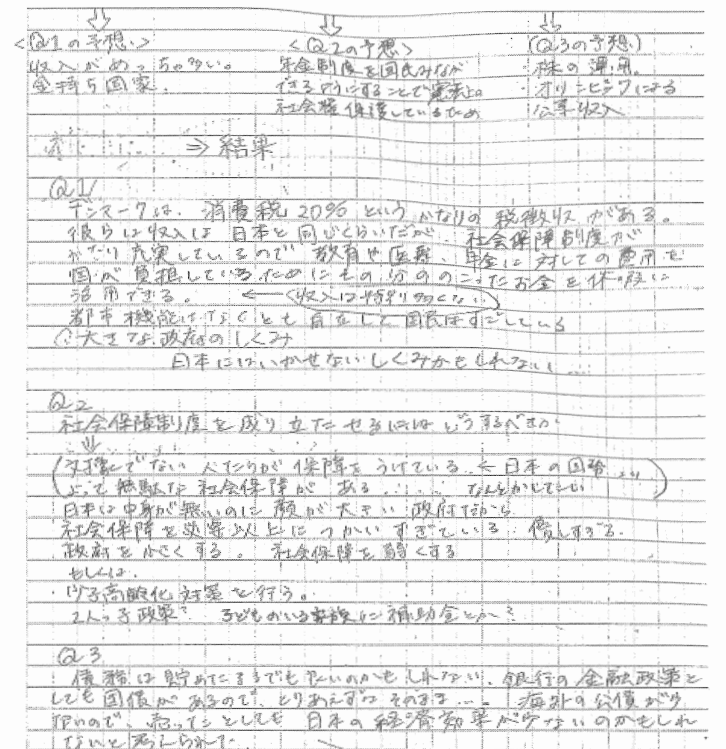 <Q1の予想>
収入がめっちゃ多い。
金持ち国家.
<Q2の予想>
年金制度を国民みなが
できるようにすることで憲法上の
社会権保護しているため
(Q3の予想)
株の運用.
オリンピックによる
公享収入
⇒ 結果
Q1/
デンマークは、消費税20%というかなりの税徴収がある。
彼らは収入は日本と同じくらいだが、社会保障制度が
かなり充実しているので教育や医療、年金に対しての費用を
国が負担しているためにその分ののこったお金を休暇に
活用できる。 ← (収入は特別多くない)
都市機能はなくとも自立した国民はすごしている
大きな政府のしくみ
日本にはいかせないしくみかもしれない…
Q2
社会保障制度を成り立たせるにはどうするべきか
⇓
(支援でない人たちが保障をうけている ← 日本の国務
よって無駄な社会保障がある なんとかしてほしい)
日本は中身が無いのに額が大きい政府だから
社会保障を必要以上につかいすぎている 優しすぎる.
政府を小さくする。 社会保障を弱くする
もしくは.
少子高齢化対策を行う。
2人っ子政策? 子どものいる家族に補助金とか?
Q3
債務は貯めたままでも良いのかもしれない. 銀行の金融政策と
しても国債があるので、とりあえずはそのまま… 海外の公債が少
ないので、 としても日本の経済効果が少ないのかもしれ
ないと考えられた